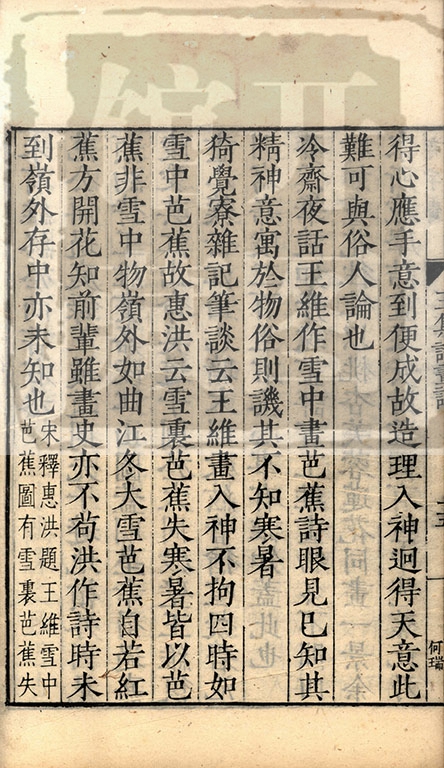 得心應手意到便成故造理入神迥得天意此
難可與俗人論也
冷齋夜話王維作雪中畫芭蕉詩眼見已知其
精神意寓於物俗則譏其不知寒暑
猗覺寮雜記筆談云王維畫入神不拘四時如
雪中芭蕉故惠洪云雪裏芭蕉失寒暑皆以芭
蕉非雪中物嶺外如曲江冬大雪芭蕉自若紅
蕉方開花知前輩雖畫史亦不苟洪作詩時未
到嶺外存中亦未知也宋釋惠洪題王維雪中
芭蕉圖有雪裏芭蕉失
何瑞